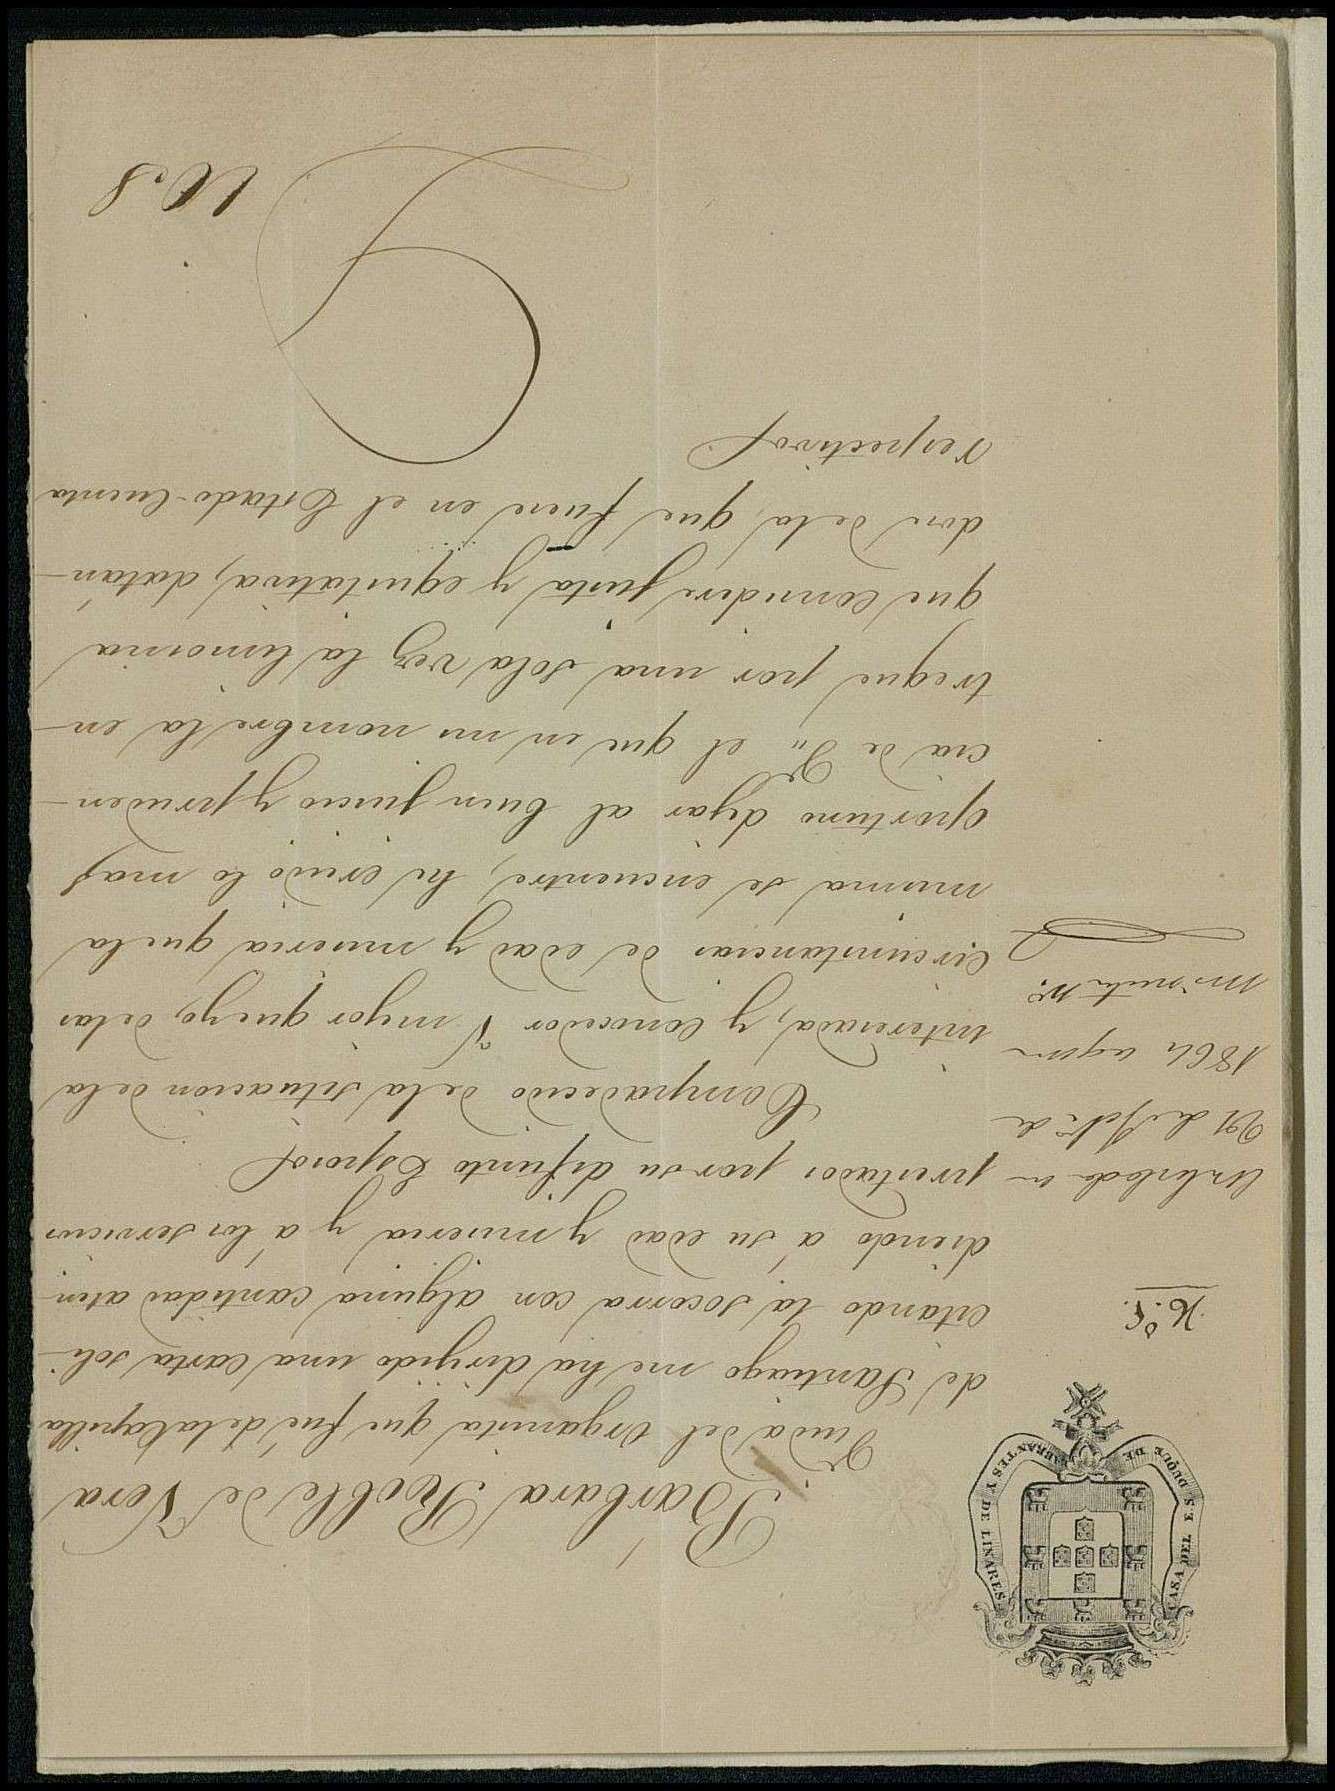 CASA DEL E.S. DUQUE DE ABRANTES Y DE LINARES
Bárbara Roble de Vera
Viuda del Organista que fué de la Capilla
de Santiago me ha dirijido una Carta soli-
citando la socorra con alguna cantidad aten-
diendo á su edad y miseria y á los servicios
prestados por su difunto Esposo
Compadecido de la situacion de la
interesada, y conocedor V. mejor que yo, de las
Circunstancias de edad y miseria que la
misma se encuentre, he creido lo mas
oportuno dejar al buen juicio y pruden-
cia de V. el que en mi nombre la en-
tregue por una sola vez la limosna
que considere justa y equitativa, datán-
dose de la que fuere en el Estado-Cuenta
respectivo
de
1864 segun
minuta nº